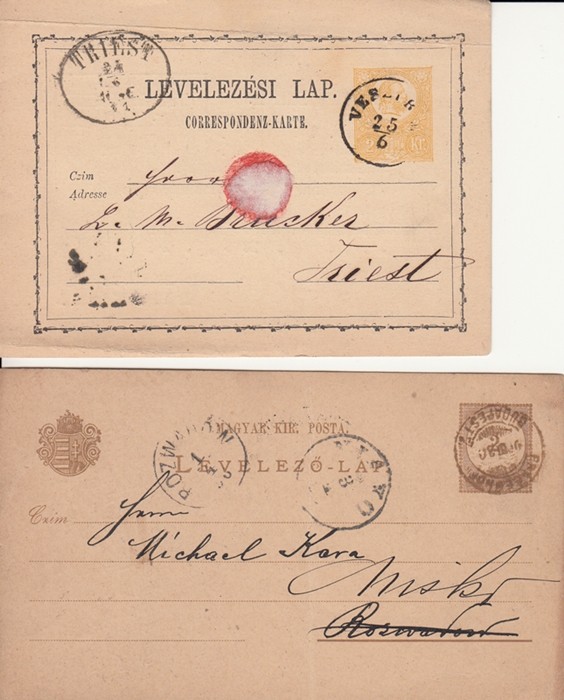 TRIEST
24
6
LEVELEZÉSI LAP.
CORRESPONDENZ-KARTE.
25
6
2 Kr
Czím
Adresse
L. M. Brucker
Triest
MAGYAR KIR. POSTA.
LEVELEZŐ-LAP
BUDAPEST
Czím
Herrn
Michael Kara
Nisko
Rozwadow